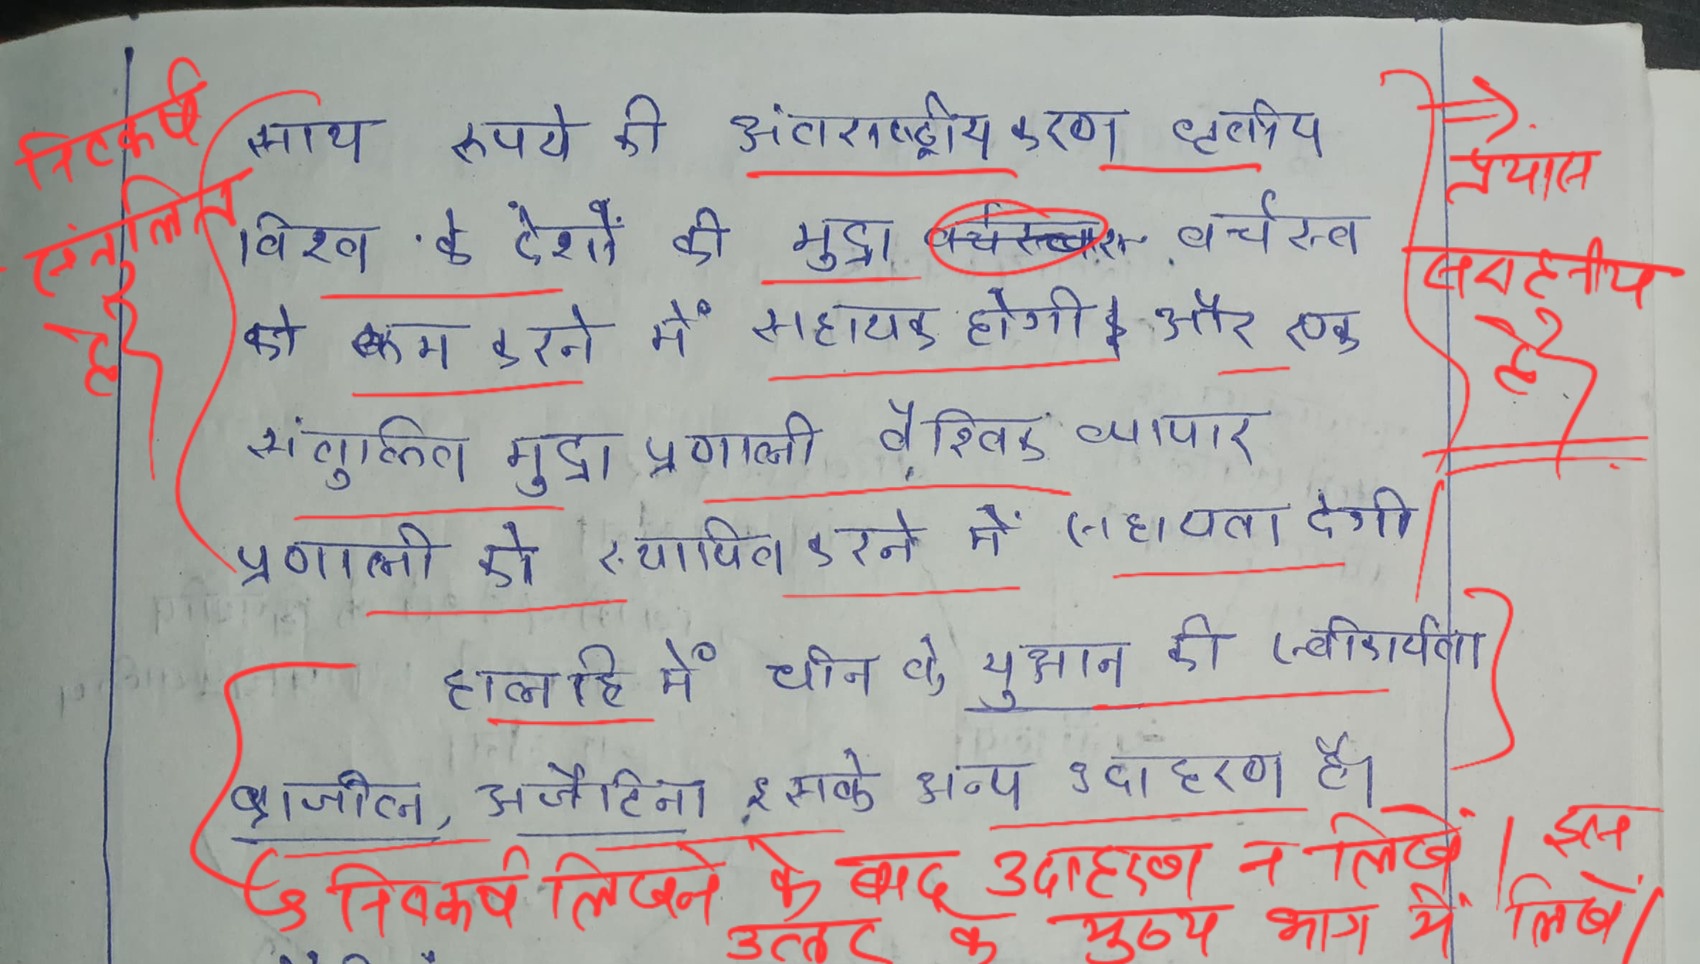 निष्कर्ष
संतुलित
है
साथ रूपये की अंतराष्ट्रीयकरण तृतीय
विश्व के देशों की मुद्रा वर्चस्व
को कम करने में सहायक होगी और एक
संतुलित मुद्रा प्रणाली वैश्विक व्यापार
प्रणाली को स्थापित करने में सहायता देगी
हालहि में चीन के युआन की स्वीकार्यता
ब्राजील, अर्जेंटिना इसके अन्य उदाहरण है।
प्रयास
सराहनीय
है
निष्कर्ष लिखने के बाद उदाहरण न लिखें। इस
उत्तर के मुख्य भाग में लिखें।